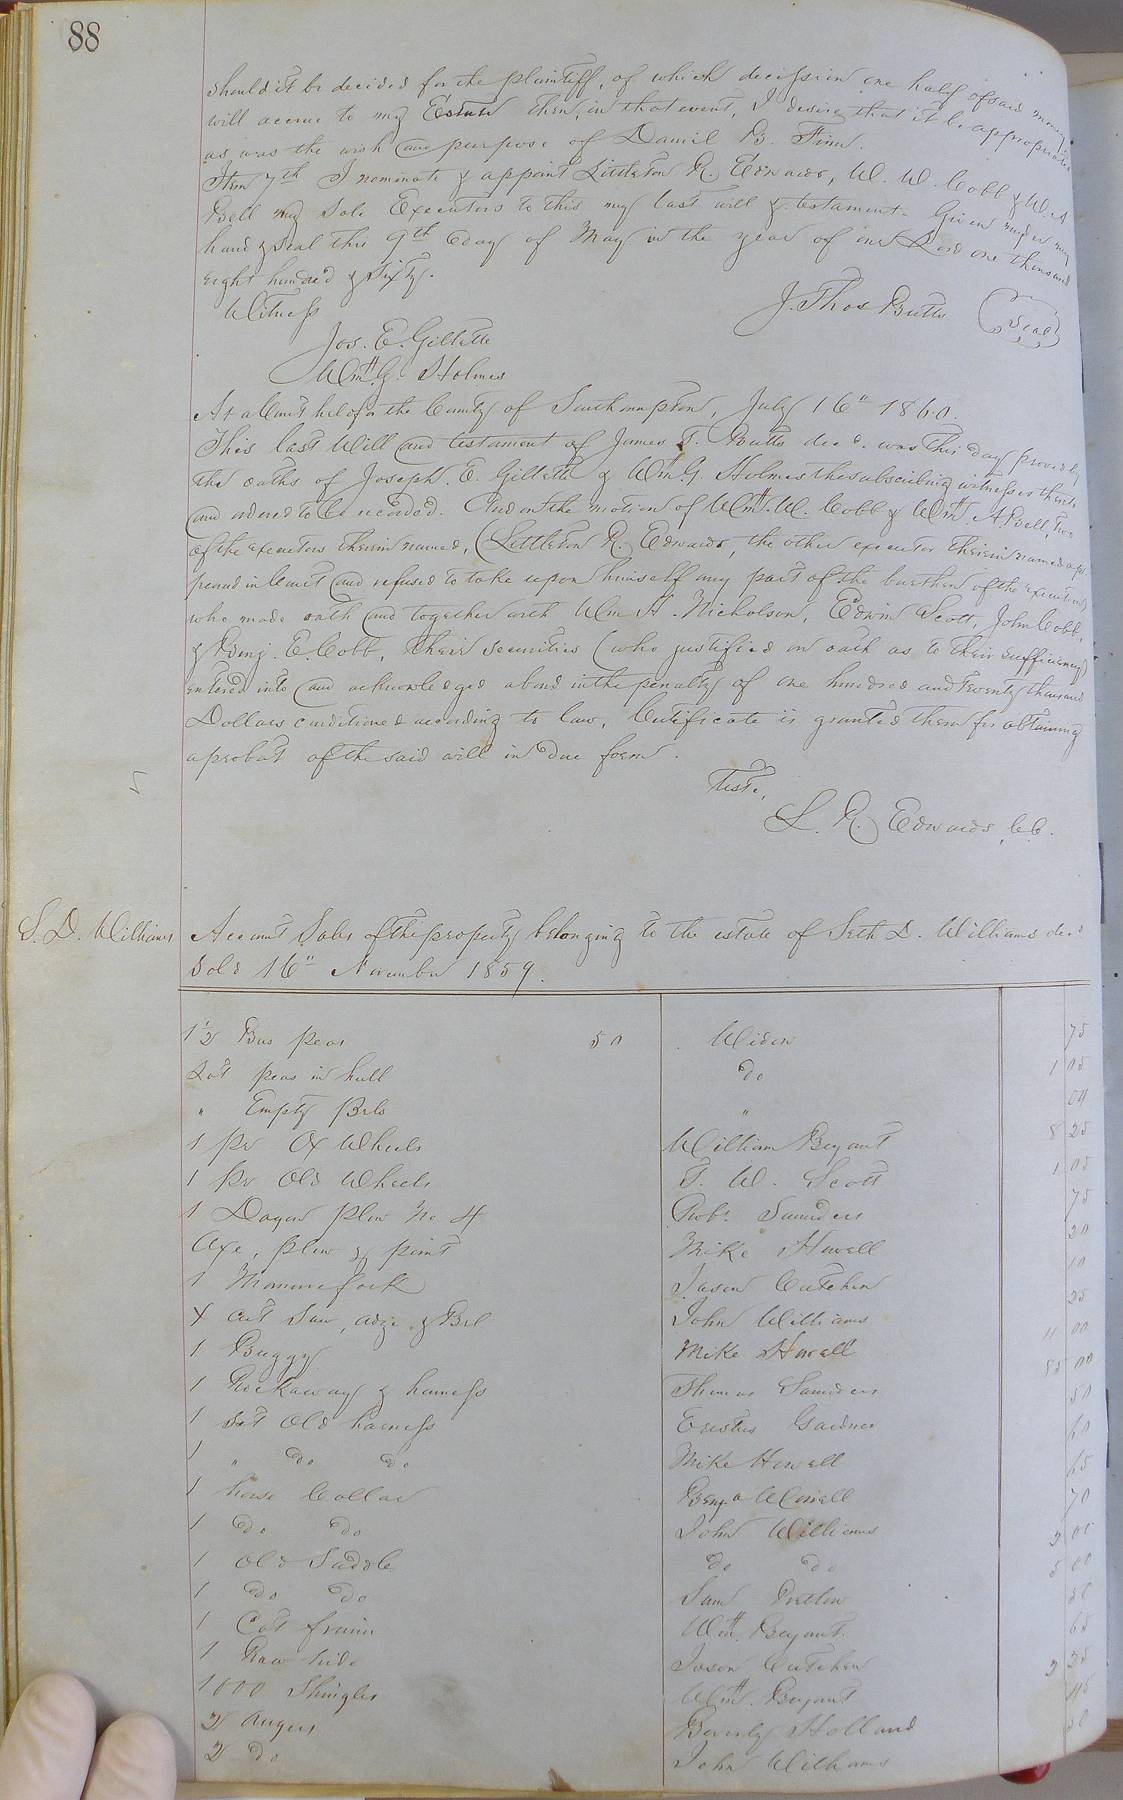 88
should it be decided for the plaintiff, of which decission one half of said money
will accrue to my Estate then, in that event, I desire that it be appropriated
as was the wish and purpose of Daniel B. Finn.
Item 7th I nominate & appoint Littleton R. Edwards, W. W. Cobb & W. A
Bell my Sole Executors to this my last will & testament. Given under my
hand & seal this 9th day of May in the year of our Lord one thousand
eight hundred & sixty.
Witness
J. Thos Butts (Seal)
Jos. E. Gillette
Wm. G. Holmes
At a Court held for the County of Southampton, July 16" 1860.
This last Will and testament of James T. Butts decd. was this day proved by
the oaths of Joseph. E. Gillette & Wm. G. Holmes the subscribing witnesses thereto
and ordered to be recorded. And on the motion of Wm. W. Cobb & Wm A Bell, two
of the executors therein named, (Littleton R. Edwards, the other executor therein named ap-
peared in Court and refused to take upon himself any part of the burthen of the execution)
who made oath and together with Wm A. Nicholson, Edwin Scott, John Cobb,
& Benj. E. Cobb, their securities (who justified on oath as to their sufficiency)
entered into and acknowledged a bond in the penalty of one hundred and twenty thousand
Dollars conditioned according to law, Certificate is granted them for obtaining
a probat of the said will in due form.
Teste,
L. R. Edwards, C.C.
S. D. Williams
Account Sales of the property belonging to the estate of Seth D. Williams decd
sold 16" November 1859.
1 1/2 Bus peas 50 Widow 75
Lot peas in hull do 1 05
" Empty Brls "
1 Pr Ox Wheels William Bryant 8 25
1 Pr Old Wheels T. W. Scott 1 05
1 Dagon Plow No 4 Robt Saunders 75
Axe, Plow & point Mike Howell 20
1 Manure fork Jason Cutchen 10
X Cut Saw, adze & Brl John Williams 25
1 Buggy Mike Howell 11 00
1 Rockaway & harness Thomas Saunders 00
1 Set Old harness Erastus Gardner 50
1 " do do Mike Howell 60
1 horse Collar Benja W Covell 65
1 do do John Williams 70
1 Old Saddle do do
1 do do Sam Pretlow
1 Cot frame Wm. Bryant
1 Raw hide Jason Cutchen 65
1000 Shingles Wm. Bryant
2 Augers Beverly Holland
2 do John Williams